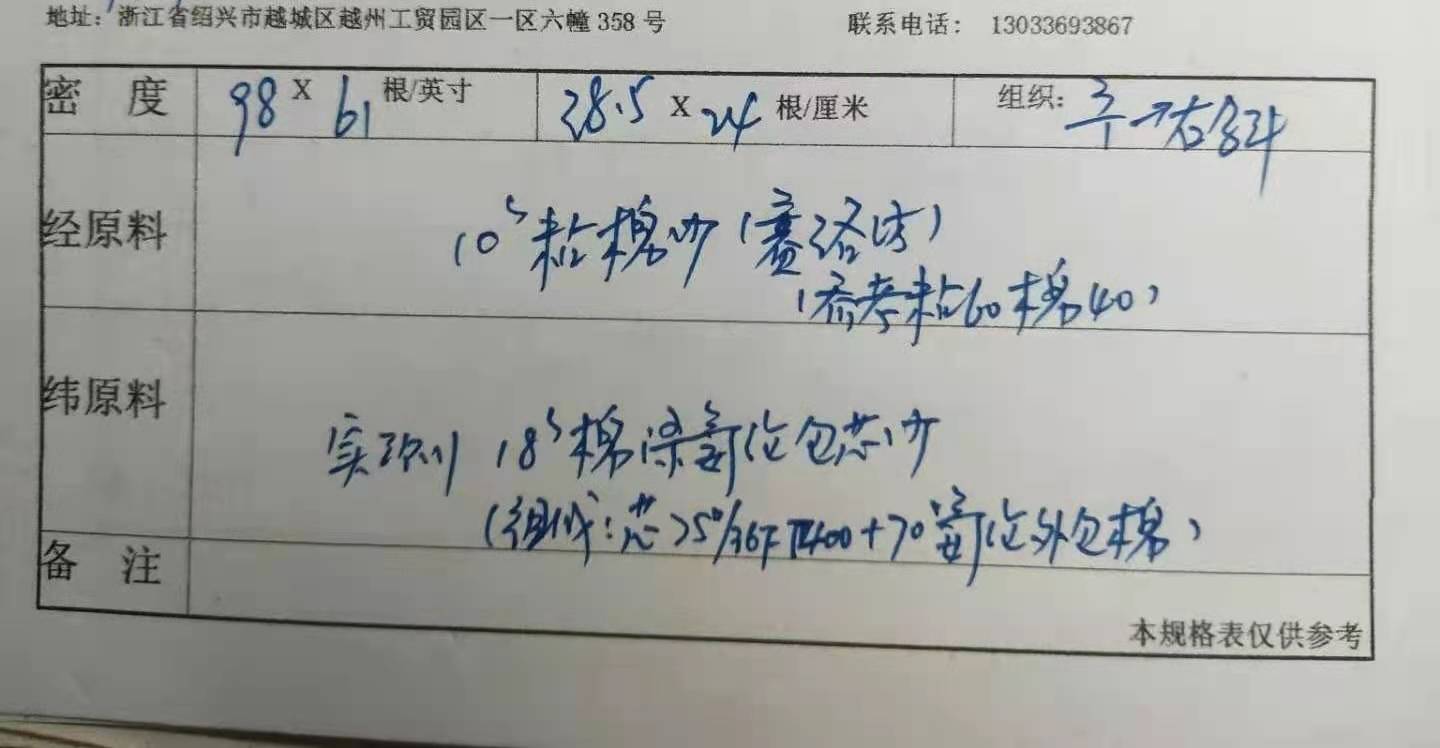 地址：浙江省绍兴市越城区越州工贸园区一区六幢 358 号 联系电话： 13033693867
密 度 98 X 61 根/英寸 38.5 X 24 根/厘米 组织： 3/1 → 右斜
经原料 10s 粘棉纱（赛络纺）
（参考粘60棉40）
纬原料
实测 18s 棉涤氨纶包芯纱
（组成：芯 75D/36F T400+70氨纶外包棉）
备 注
本规格表仅供参考